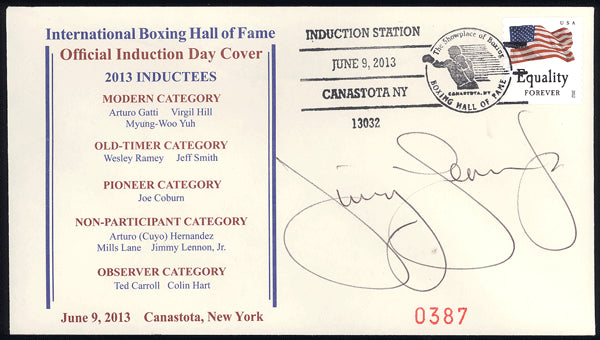 International Boxing Hall of Fame
Official Induction Day Cover
2013 INDUCTEES
MODERN CATEGORY
Arturo Gatti Virgil Hill
Myung-Woo Yuh
OLD-TIMER CATEGORY
Wesley Ramey Jeff Smith
PIONEER CATEGORY
Joe Coburn
NON-PARTICIPANT CATEGORY
Arturo (Cuyo) Hernandez
Mills Lane Jimmy Lennon, Jr.
OBSERVER CATEGORY
Ted Carroll Colin Hart
June 9, 2013 Canastota, New York
INDUCTION STATION
JUNE 9, 2013
CANASTOTA NY
13032
The Showplace of Boxing
CANASTOTA, NY
BOXING HALL OF FAME
USA
Equality
FOREVER
0387